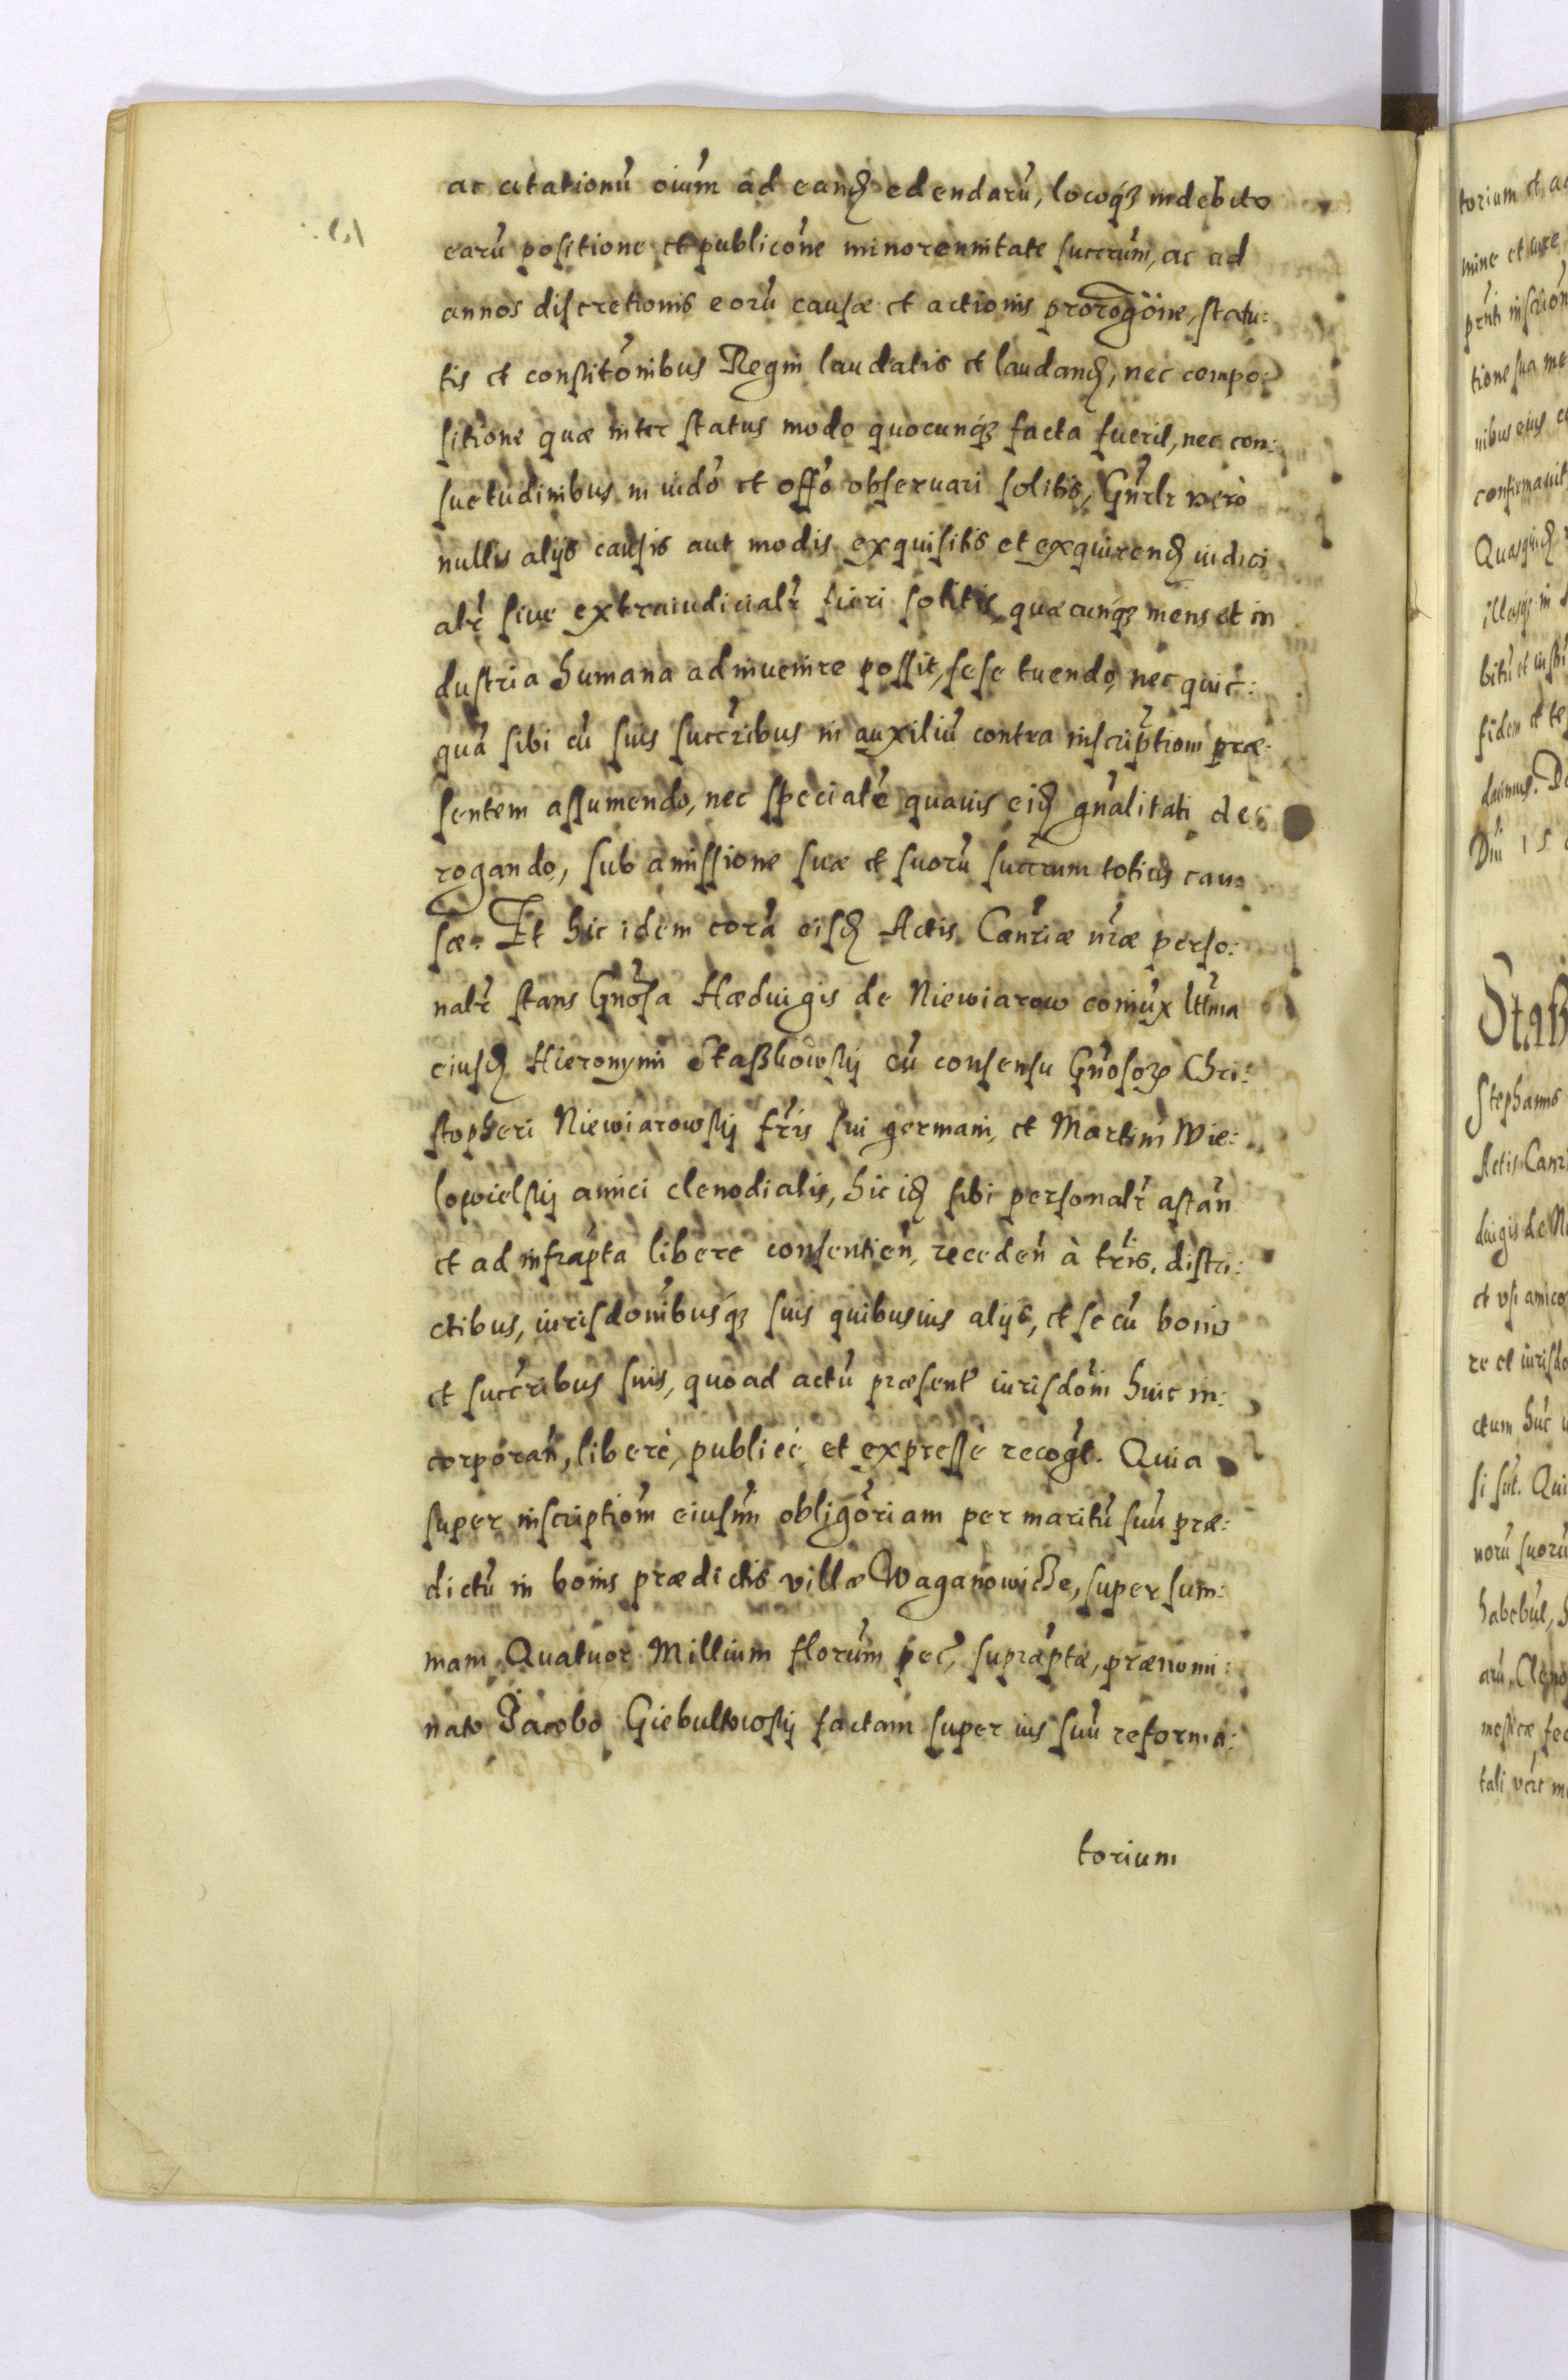 ac citationũ oium̃ ad eand edendarũ, locoq̃ indebito
earũ positione et publicõne minorennitate succrum̃, ac ad
annos discretionis eorũ causæ et actionis prorogõine, statu:
tis et constitõnibus Regni laudatis et laudand, nec compo:
sitione quæ inter status modo quocunq̃ facta fuerit, nec con:
suetudinibus in iudõ et offõ obseruari solitis, Gnr̃lr verò
nullis alijs causis aut modis exquisitis et exquirend iudici
alr̃ siue extraiudicialr̃ fieri solitis, quæcunq̃ mens et in
dustria humana adinuenire possit, sese tuendo, nec quic̃:
quã sibi cũ suis succr̃ibus in auxiliũ contra inscriptiom̃ præ:
sentem assumendo, nec specialr̃e quauis eid gnãlitati de
rogando, sub amissione suæ et suorũ succrum totius cau:
sæ. Et hic idem corã eisd Actis Canr̃iæ nr̃æ perso:
nalr̃ stans Gnõsa Hæduigis de Niewiarow coniux lttm̃a
eiusd Hieronymi Staßkowskij cũ consensu Gnõsor Chri:
stopheri Niewiarowskij fr̃is sui germani, et Martini Wie:
lowielskij amici clenodialis, hic id sibi personalr̃ astañ
et ad infrap̃ta libere consentieñ, recedeñ à tr̃ris, distri:
ctibus, iurisdõnibusq̃ suis quibusuis alijs, et se cũ bonis
et succr̃ibus suis, quoad actũ præsent iurisdõni huic in:
corporañ, liberè, publicè et expressè recog̃t. Quia
super inscriptiom̃ eiusm̃ obligõriam per maritũ suũ præ:
dictũ in bonis prædictis villæ Waganowicze, super sum:
mam Quatuor Millium florum̃ pec̃, suprap̃tæ, prænomi:
nato Jacobo Giebultowskij factam super ius suũ reforma:
torium